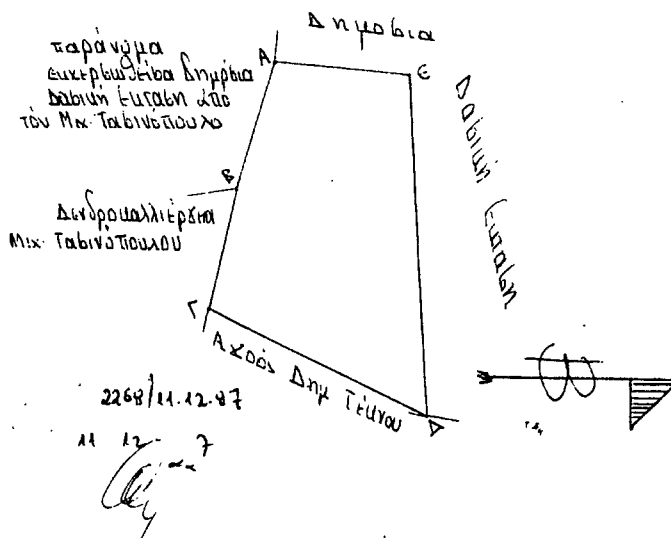 Δημοσια
παράνομα
εκχερσωθείσα Δημόσια
Δασική Εκταση απο
τόν Μιχ. Τασινόπουλο
Α
Ε
Δασική Εκταση
Β
Δενδροκαλλιέργεια
Μιχ. Τασινόπουλου
Γ
Αγρός Δημ Τέκνου
Δ
2268/11.12.87
11 12 7